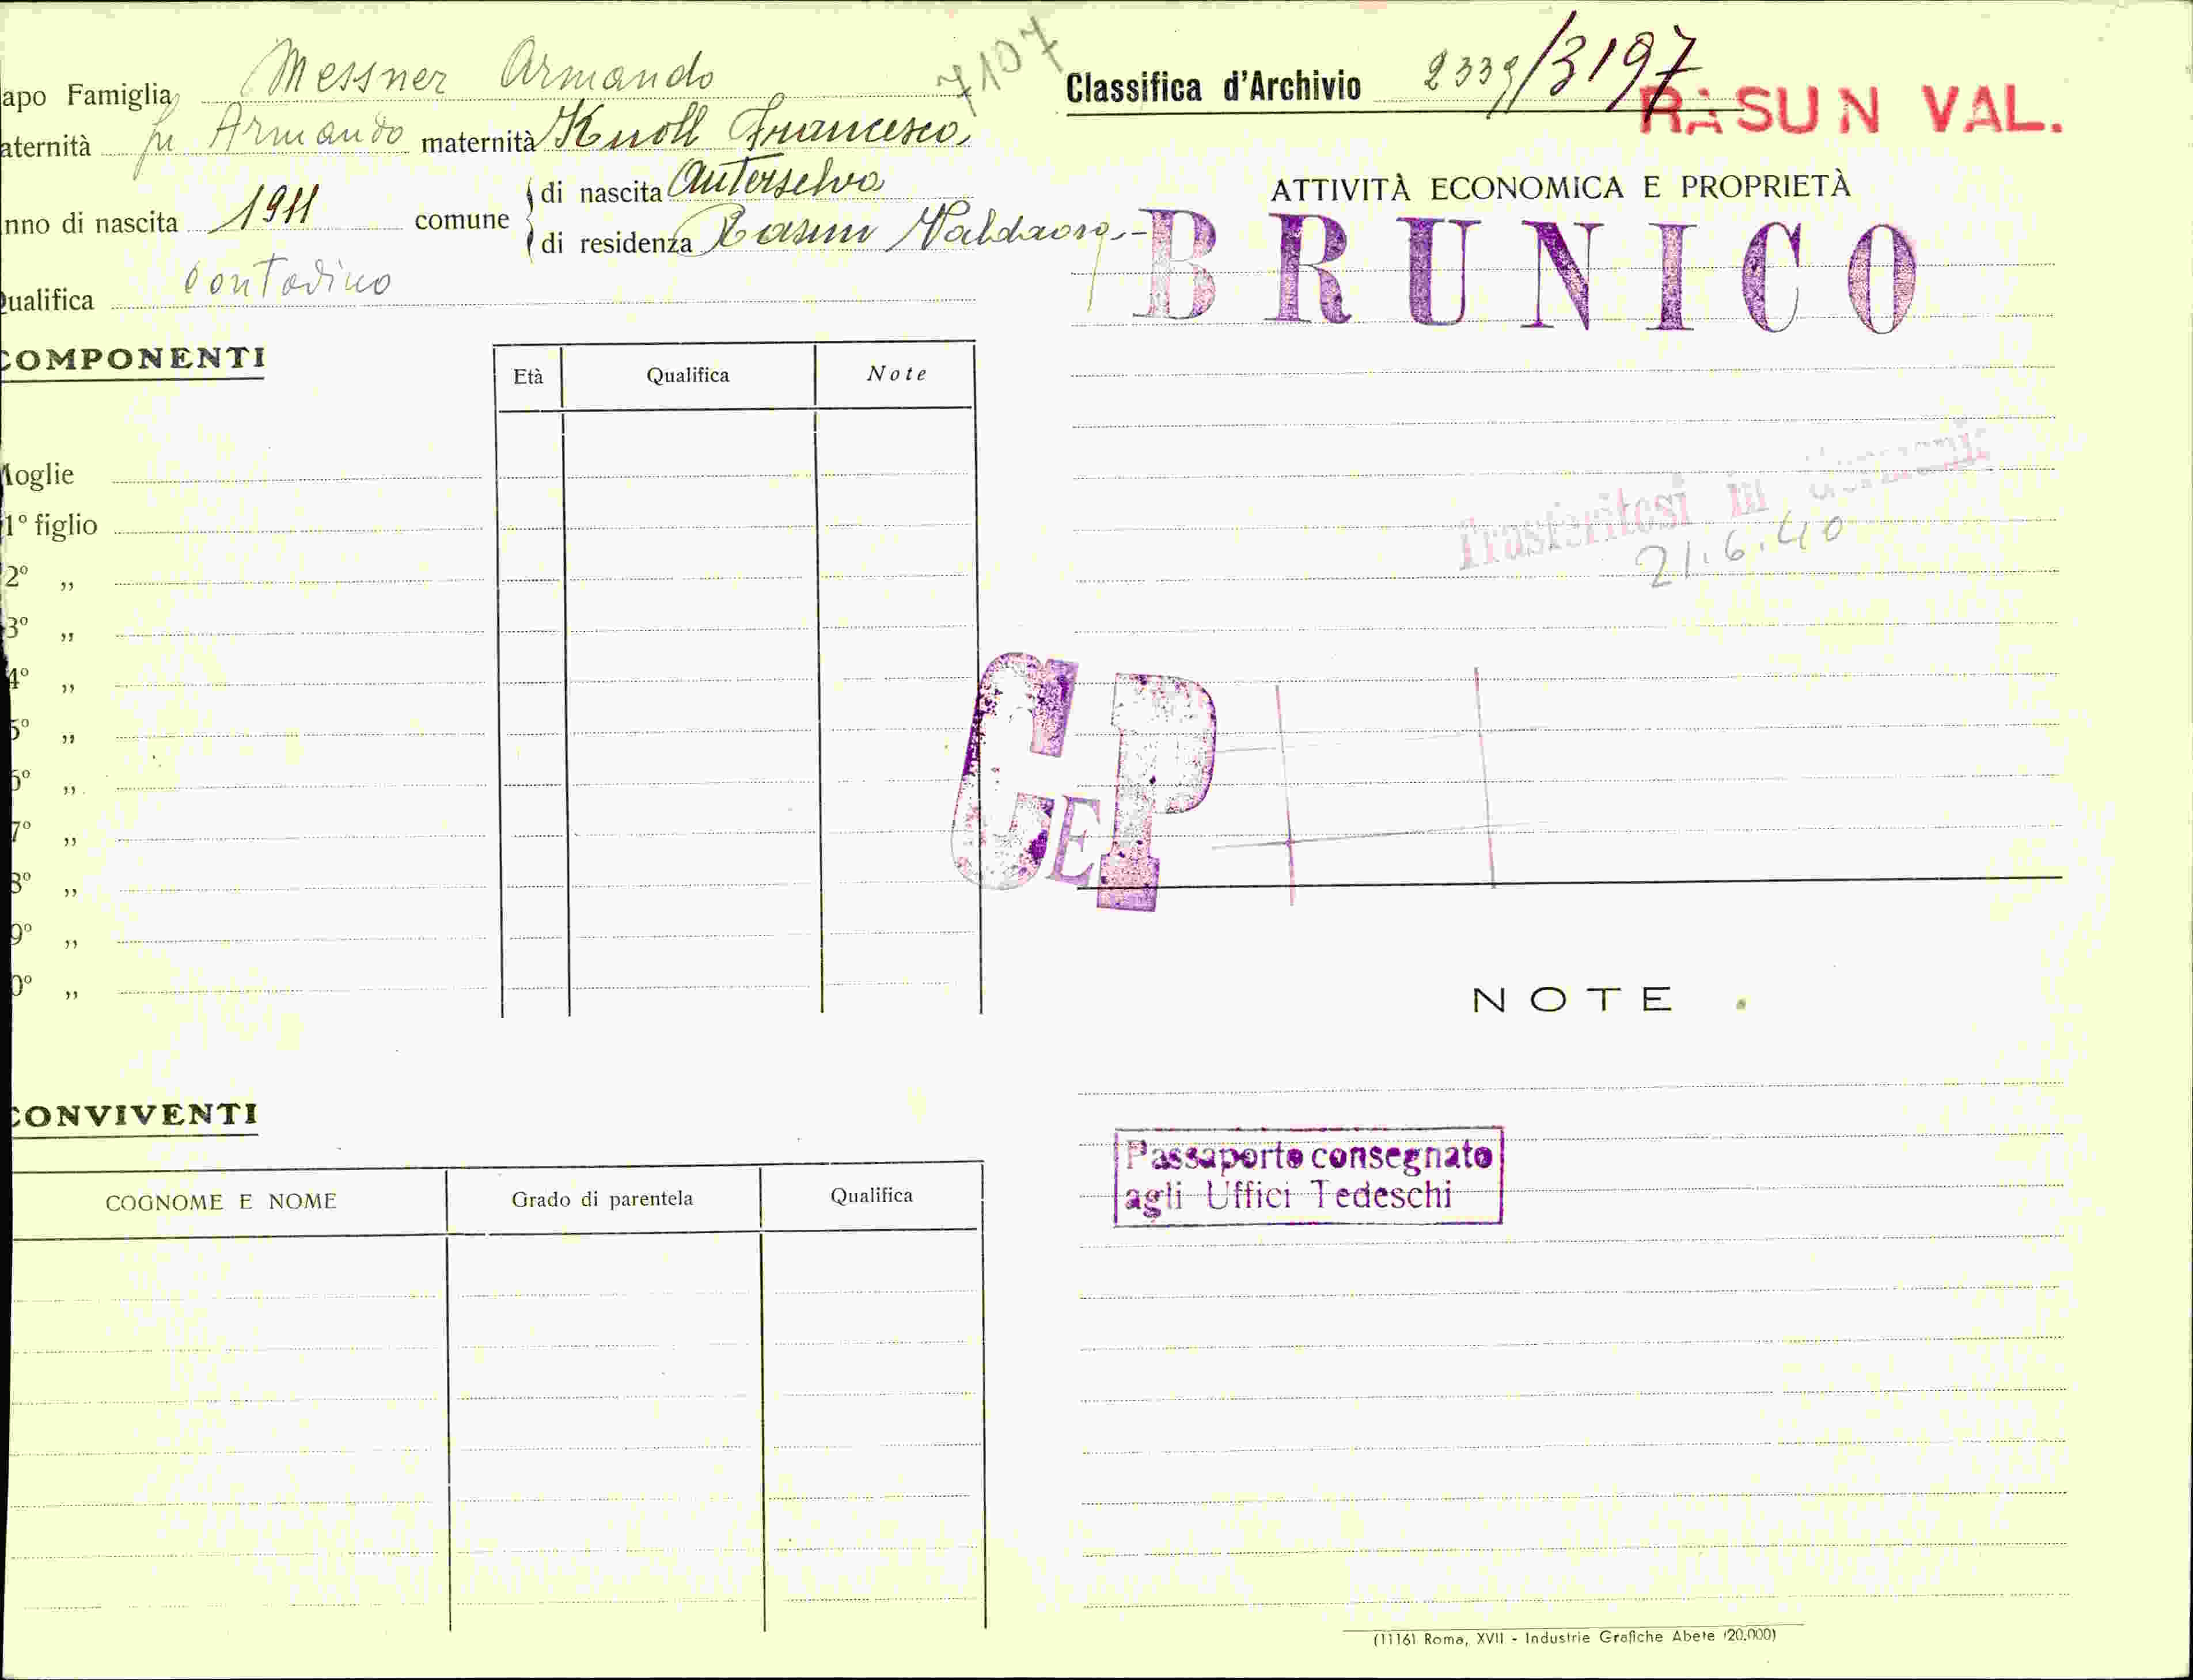 apo Famiglia Messner Armando 7107
aternità fu Armando maternità Knoll Francesca
nno di nascita 1911 comune di nascita Anterselva
di residenza Rasun Valdaora
ualifica Contadino
COMPONENTI
Età Qualifica Note
Moglie
1° figlio
2° „
3° „
4° „
5° „
6° „
7° „
8° „
9° „
0° „
CONVIVENTI
COGNOME E NOME Grado di parentela Qualifica
Classifica d'Archivio 2339/3197
RASUN VAL.
ATTIVITÀ ECONOMICA E PROPRIETÀ
BRUNICO
Trasferitosi in Germania
21.6.40
GEP
NOTE
Passaporto consegnato
agli Uffici Tedeschi
(1116) Roma, XVII - Industrie Grafiche Abete (20.000)